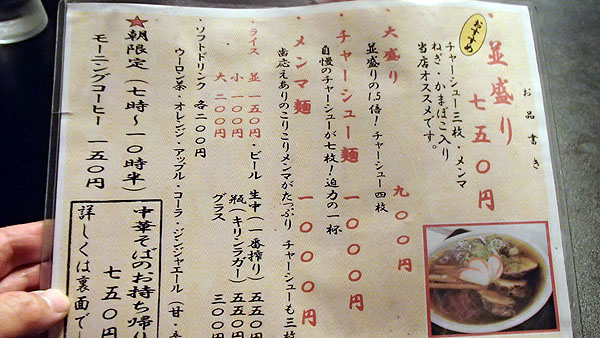 お品書き
おすすめ
並盛り 七五〇円
チャーシュー三枚・メンマ
ねぎ・かまぼこ入り
当店オススメです。
大盛り 九〇〇円
並盛りの1.5倍！チャーシュー四枚
チャーシュー麺 一〇〇〇円
自慢のチャーシューが七枚！迫力の一杯
メンマ麺 一〇〇〇円
歯応えありのこりこりメンマがたっぷり チャーシューも三枚
ライス 並 一五〇円
小 一〇〇円
大 二〇〇円
・ビール 生中（一番搾り） 五五〇円
瓶（キリンラガー） 五五〇円
グラス 三〇〇円
・ソフトドリンク 各二〇〇円
ウーロン茶・オレンジ・アップル・コーラ・ジンジャエール（甘・
★朝限定（七時～一〇時半）
モーニングコーヒー 一五〇円
中華そばのお持ち帰り
七五〇円
詳しくは裏面で